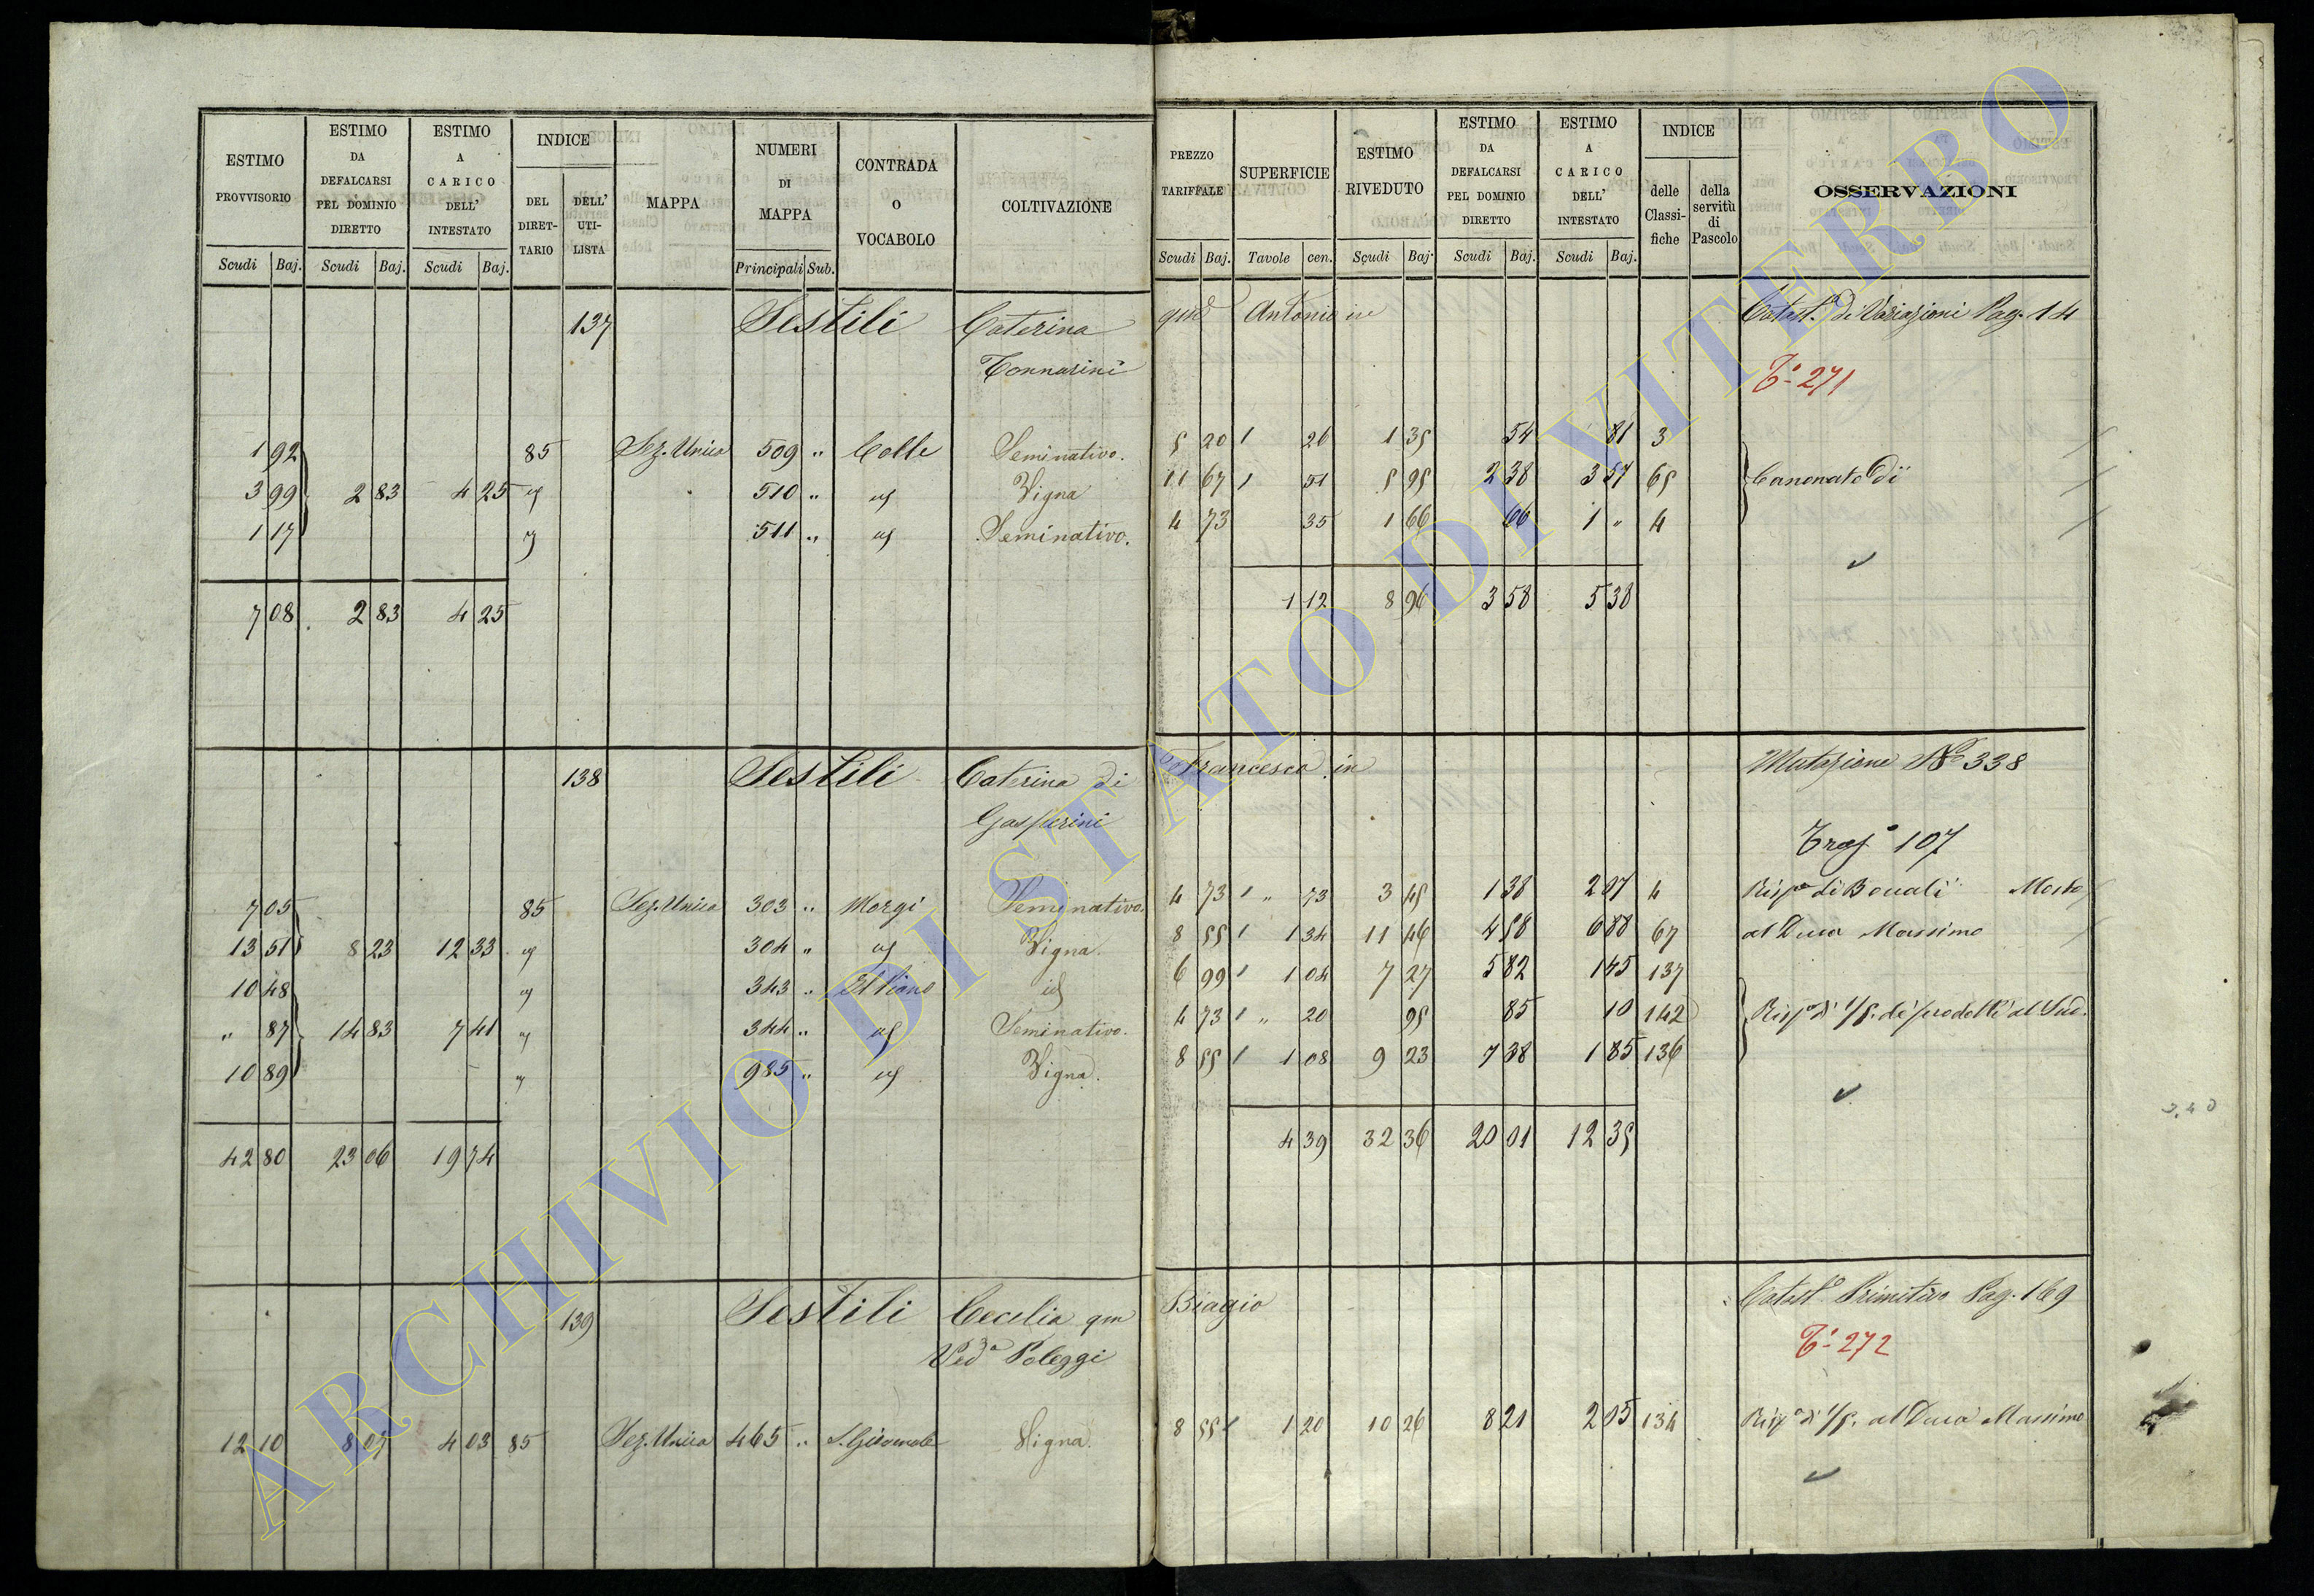 ESTIMO PROVVISORIO
ESTIMO DA DEFALCARSI PEL DOMINIO DIRETTO
ESTIMO A CARICO DELL' INTESTATO
INDICE
DEL DIRET-TARIO
DELL' UTI-LISTA
MAPPA
NUMERI DI MAPPA
CONTRADA O VOCABOLO
COLTIVAZIONE
Scudi Baj. Scudi Baj. Scudi Baj. Principali Sub.
PREZZO TARIFFALE
SUPERFICIE
ESTIMO RIVEDUTO
ESTIMO DA DEFALCARSI PEL DOMINIO DIRETTO
ESTIMO A CARICO DELL' INTESTATO
INDICE
delle Classi-fiche
della servitù di Pascolo
OSSERVAZIONI
Scudi Baj. Tavole cen. Scudi Baj. Scudi Baj. Scudi Baj.
137 Sestili Caterina qm Antonio in Catast.º di Variazioni Pag. 14
Tonnarini Tº 271
1 92 85 Sez. Unica 509 " Colle Seminativo. 5 20 1 26 1 35 54 81 3
3 99 2 83 4 25 id 510 " id Vigna 11 67 1 51 5 95 2 38 3 57 65 Canonato di
1 17 id 511 " id Seminativo. 4 73 35 1 66 66 1 " 4
7 08 2 83 4 25 1 12 8 96 3 58 5 38
138 Sestili Caterina di Francesco in Mutazione Nº 338
Gasparini
Trasº 107
7 05 85 Sez. Unica 303 " Morgi Seminativo. 4 73 1 " 73 3 45 1 38 2 07 4 Rispª di Bovali Mosto
13 51 8 23 12 33 id 304 " id Vigna. 8 55 1 1 34 11 46 4 58 6 88 67 al Duca Massimo
10 48 id 343 " id 6 99 1 1 04 7 27 5 82 1 45 137
" 87 14 83 7 41 id 344 " id Seminativo. 4 73 1 " 20 95 85 10 142 Rispª di 1/5. di prodotti al Sud.
10 89 id 985 " id Vigna. 8 55 1 1 08 9 23 7 38 1 85 136
42 80 23 06 19 74 4 39 32 36 20 01 12 35
139 Sestili Cecilia qm Biagio Catast.º Primitivo Pag. 169
Vedª Poleggi Tº 272
12 10 8 07 4 03 85 Sez. Unica 465 " Vigna. 8 55 1 1 20 10 26 8 21 2 05 134 Rispª di 1/5. al Duca Massimo
ARCHIVIO DI STATO DI VITERBO